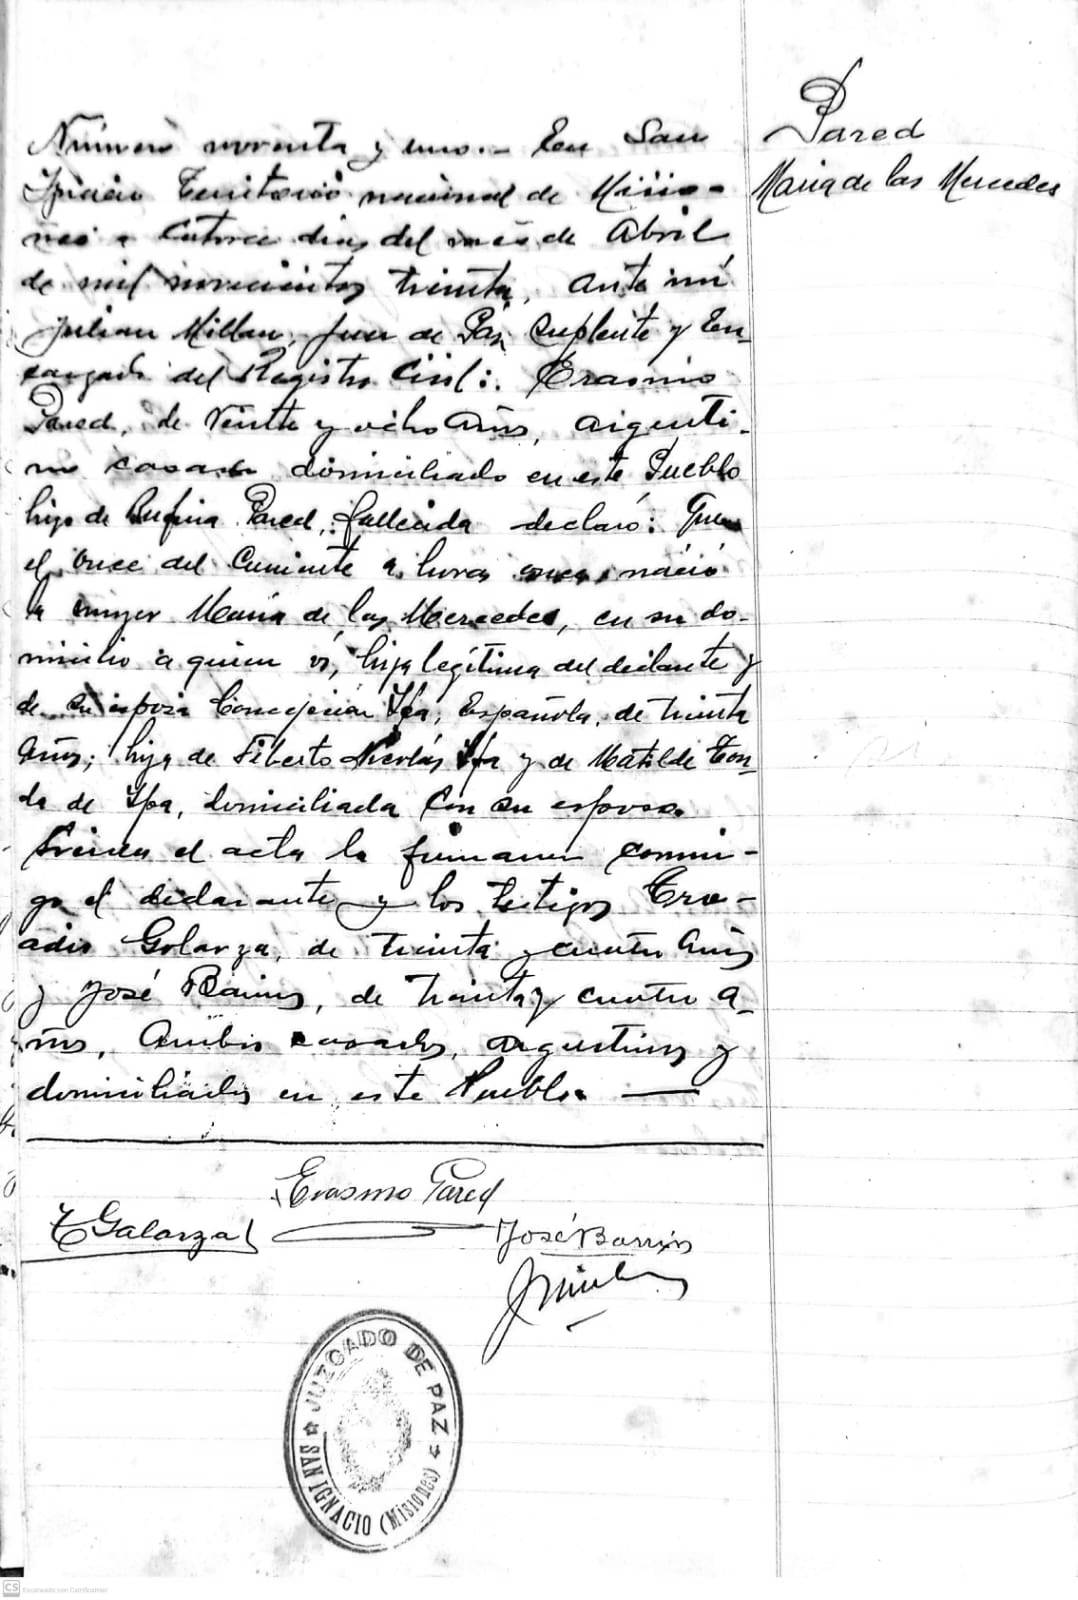 Pared
Maria de las Mercedes
Número noventa y uno.- En San
Ignacio Territorio nacional de Misio-
nes a Catorce dias del mes de Abril
de mil novecientos treinta, ante mí
Julian Millan, Juez de Páz Suplente y En-
cargado del Registro Civil: Erasmo
Pared, de Veinte y ocho Años, argenti-
no casado domiciliado en este Pueblo
hijo de Rufina Pared, fallecida declaró: Que
el once del Corriente a horas once nació
la mujer María de las Mercedes, en su do-
micilio a quien ví, hija legítima del declante y
de su esposa Concepción Ifa, Española, de treinta
Años; hija de Filberto Nicolás Ifa y de Matilde Ton-
da de Ifa, domiciliada Con su esposo.
el acta la firmaron conmi-
go el declarante y los testigos
Golarza, de treinta y cuatro Años
y José Barrios, de treinta y cuatro a-
ños, Ambos casados, argentinos y
domiciliados en este Pueblo. —
Erasmo Pared
Galarza
José Barrios
JUZGADO DE PAZ
SAN IGNACIO (Misiones)
CS Escaneado con CamScanner